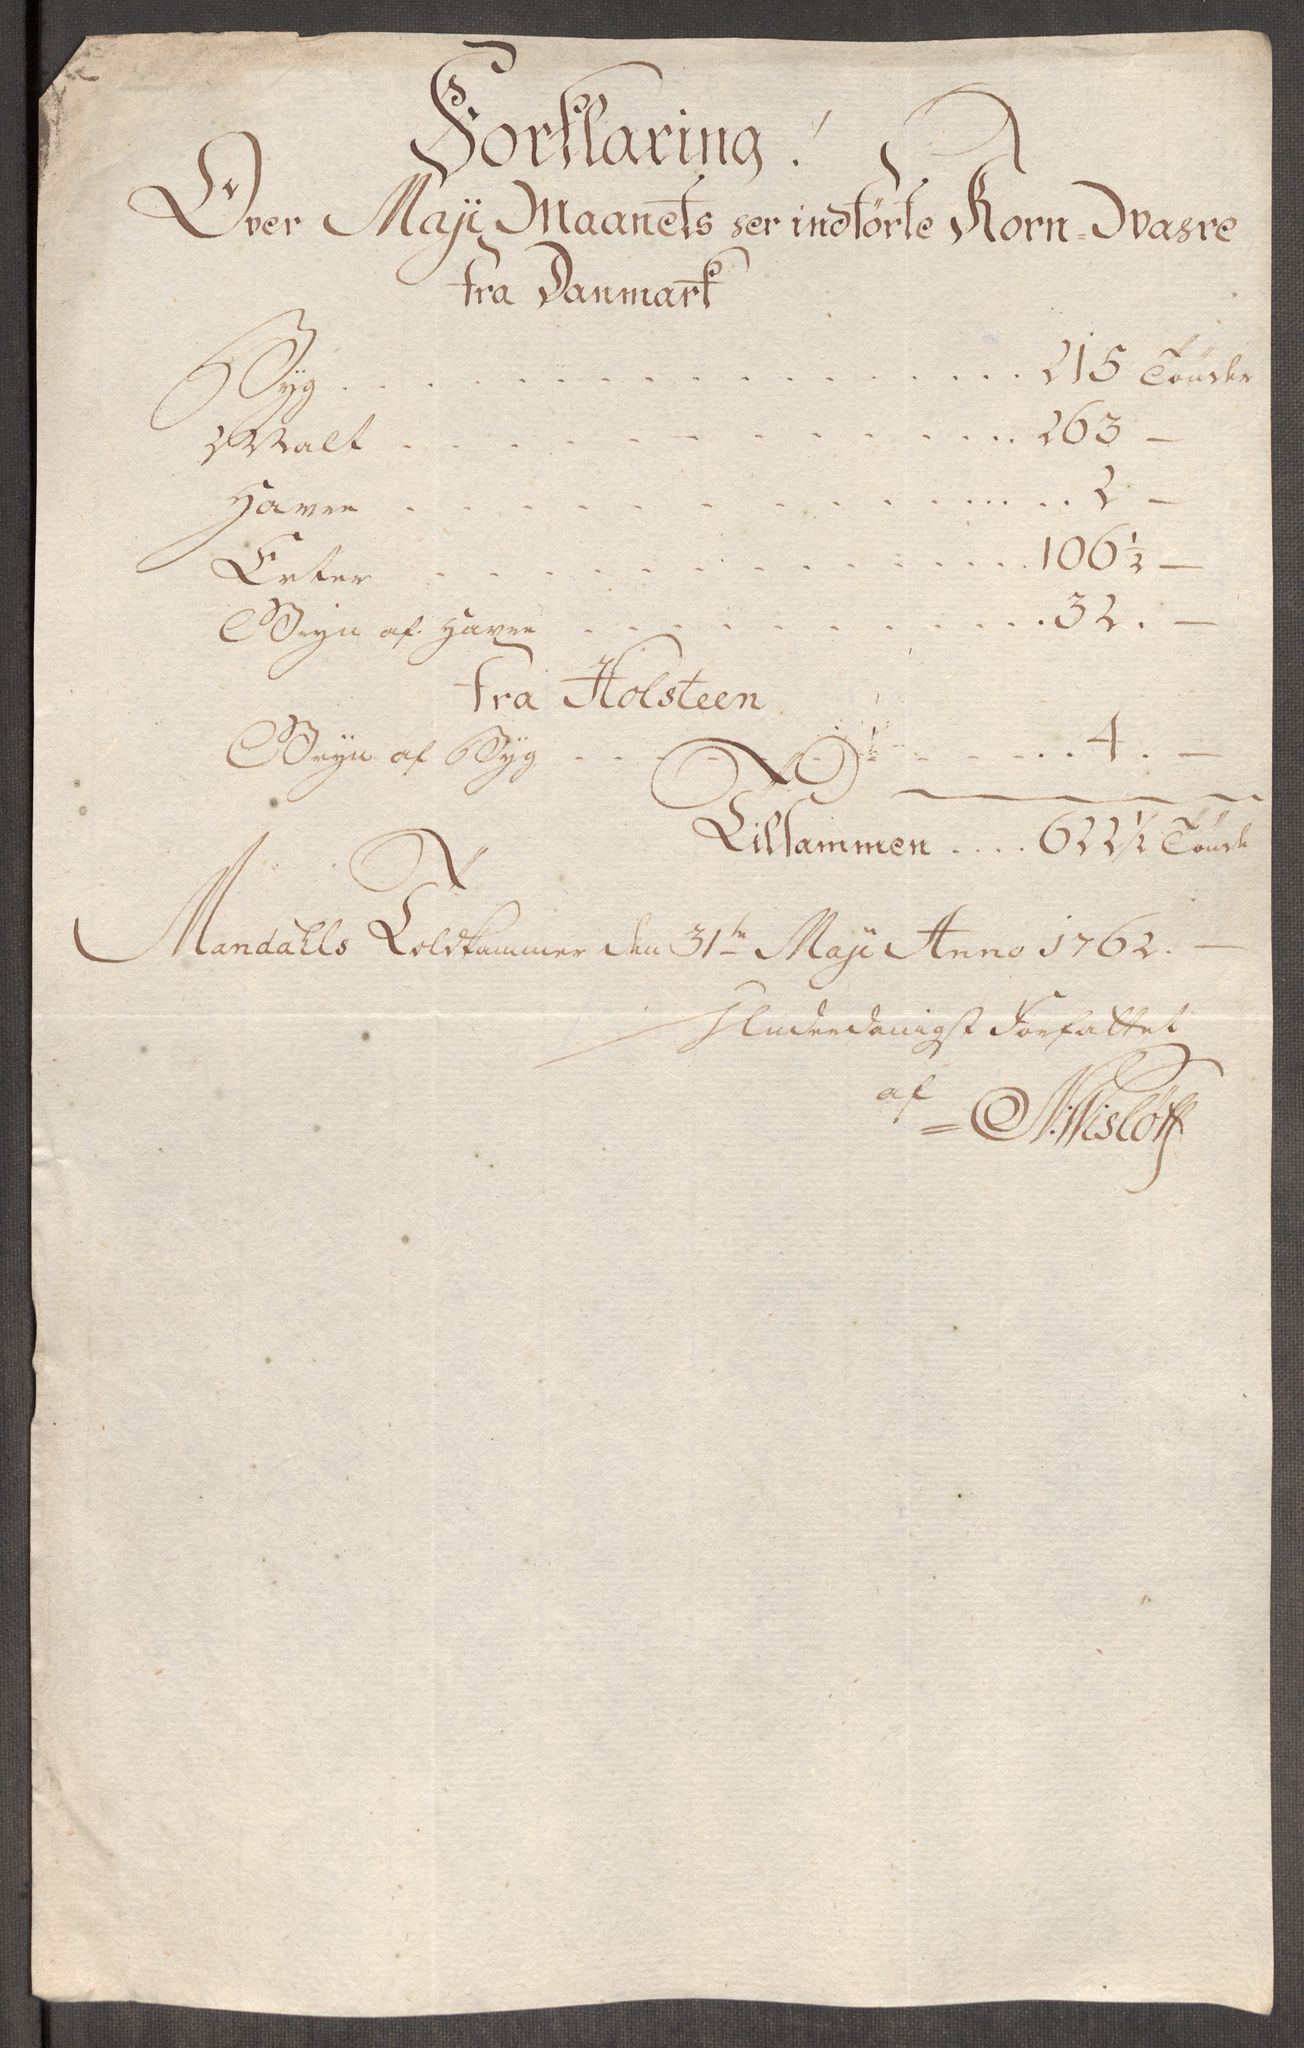 Forklaring!
Over Maji Maanets her indförte Korn-Vahre
fra Danmark
Byg . . . . . 215 Tönder
Malt . . . . . 263 —
Havre . . . . . 2 —
Erter . . . . . 106½ —
Gryn af Havre . . . . . 32. —
fra Holsteen
Gryn af Byg . . . . . 4. —
Tilsammen .... 622½ Tönder
Mandahls Toldkammer den 31te Maji Anno 1762. —
Underdanigst Forfattet
af
N: Wislöff